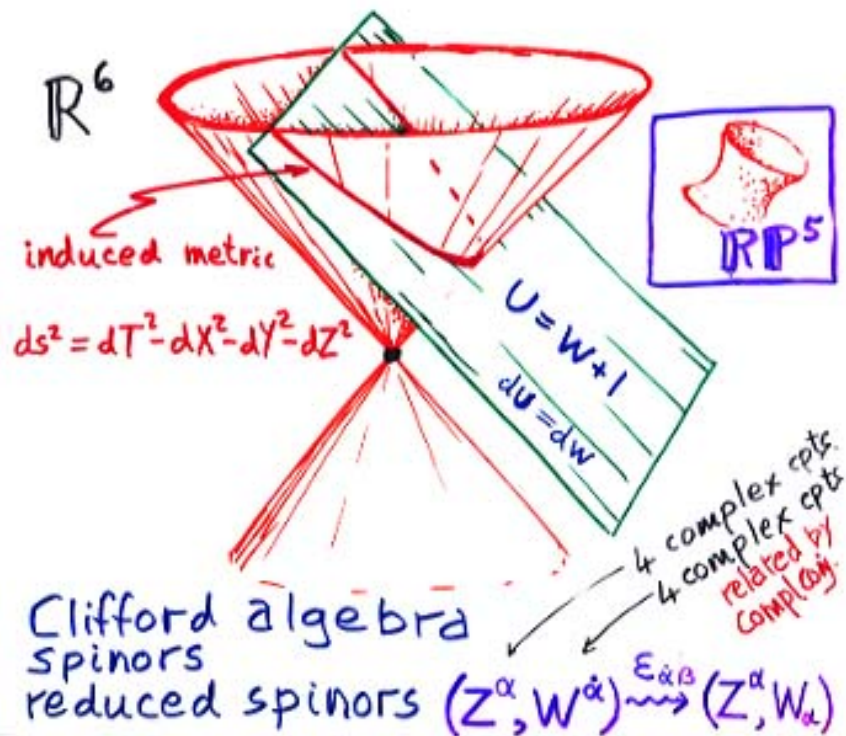 ℝ⁶
ℝℙ⁵
induced metric
ds² = dT² - dX² - dY² - dZ²
U = W + 1
dU = dW
4 complex cpts.
4 complex cpts
related by
comp.conj.
Clifford algebra
spinors
reduced spinors (Z^α, W^α̇) ε_α̇β ⇝ (Z^α, W_α)